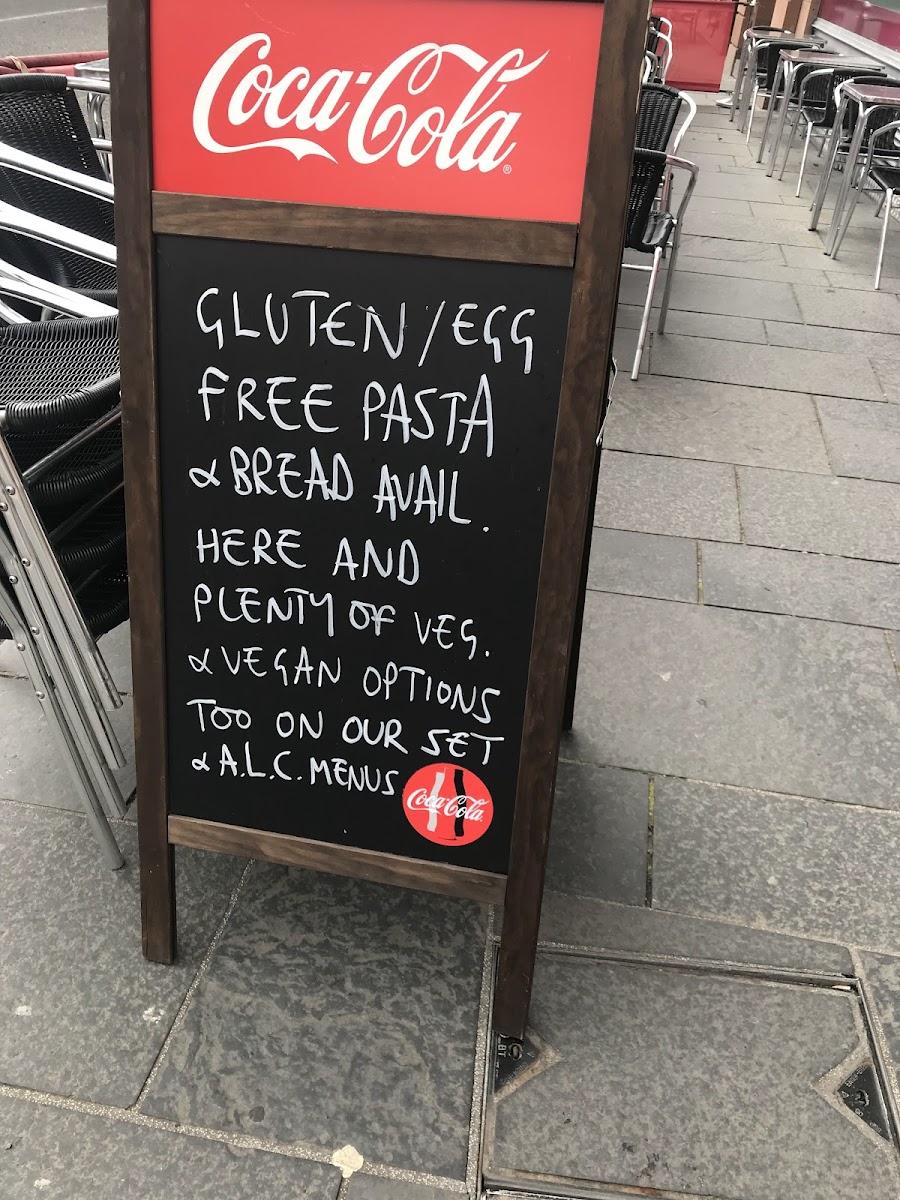 Coca-Cola®
GLUTEN/EGG
FREE PASTA
& BREAD AVAIL.
HERE AND
PLENTY OF VEG.
& VEGAN OPTIONS
TOO ON OUR SET
& A.L.C. MENUS
Coca-Cola